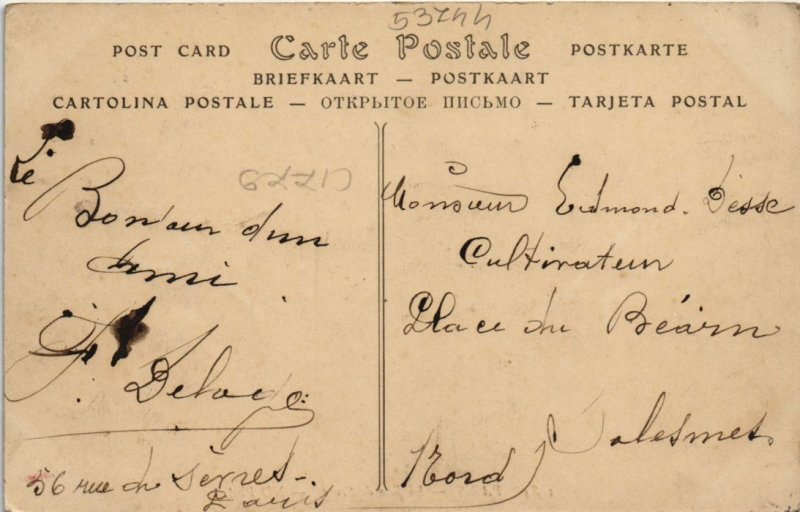 53744
POST CARD Carte Postale POSTKARTE
BRIEFKAART — POSTKAART
CARTOLINA POSTALE — ОТКРЫТОЕ ПИСЬМО — TARJETA POSTAL
Le
Bonjour d'un
Ami
56 rue de Sèvres.
Paris
Monsieur Edmond
Cultivateur
Place du Béarn
Solesmes.
Nord